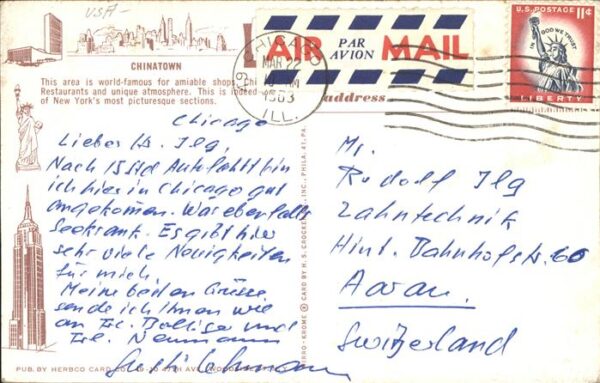 USA
CHINATOWN
This area is world-famous for amiable shops, Chi
Restaurants and unique atmosphere. This is indeed
of New York's most picturesque sections.
AIR PAR AVION MAIL
CHICAGO
MAR 22
1963
ILL.
U.S. POSTAGE 11¢
IN GOD WE TRUST
LIBERTY
address
Chicago
Lieber Hr. Ilg,
Nach 15 Std Autofahrt bin
ich hier in Chicago gut
angekommen. War ebenfalls
Seekrank. Es gibt hier
sehr viele Neuigkeiten
für mich.
Meine besten Grüsse
sende ich Ihnen wie
an Frl. Bolliger und
Frl. Neumann
Mr.
Rudolf Ilg
Zahntechnik
Hint. Bahnhofstr. 60
Aarau
Switzerland
MIRRO-KROME ® CARD BY H. S. CROCKER CO., INC., PHILA. 41, PA.
PUB. BY HERBCO CARD CO. 47TH AVE. WOOD